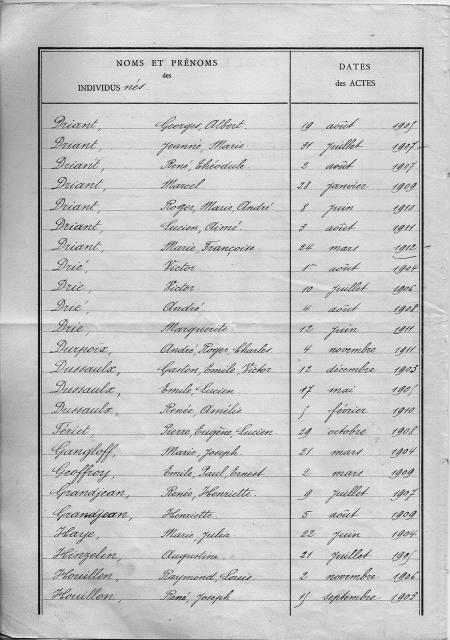 NOMS ET PRÉNOMS
des
INDIVIDUS nés
DATES
des ACTES
Driant, Georges, Albert. 19 août 1905
Driant, Jeanne, Marie 31 juillet 1907
Driant, René, Théodule 2 août 1907
Driant, Marcel 28 janvier 1909
Driant, Roger, Marie, André 8 juin 1910
Driant, Lucien, Aimé 3 août 1911
Driant, Marie, Françoise 24 mars 1912
Drié, Victor 1er août 1904
Drié, Victor 10 juillet 1906
Drié, André 4 août 1908
Drié, Marguerite 12 juin 1911
Durpoix, André, Roger, Charles 4 novembre 1911
Dussaulx, Gaston, Emile, Victor 12 décembre 1903
Dussaulx, Emile, Lucien 17 mai 1905
Dussaulx, Renée, Amélie 5 février 1910
Fériet, Pierre, Eugène, Lucien 29 octobre 1908
Gangloff, Marie, Joseph 21 mars 1904
Geoffroy, Emile, Paul, Ernest 2 mars 1909
Grandjean, Renée, Henriette 9 juillet 1907
Grandjean, Henriette 5 août 1909
Haye, Marie, Julia 22 juin 1904
Hinzelin, Augustine 21 juillet 1905
Houillon, Raymond, Louis 2 novembre 1906
Houillon, René, Joseph 15 septembre 1903